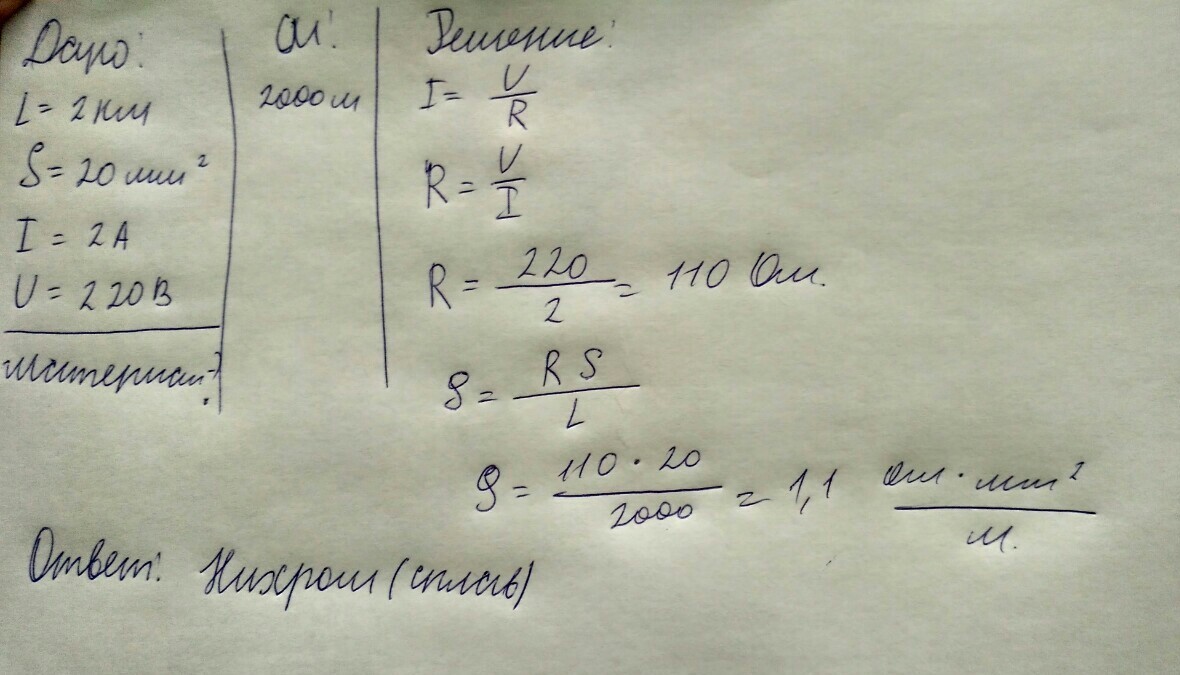 Дано:
L = 2 км
S = 20 мм²
I = 2 А
U = 220 В
материал-?
СИ:
2000 м
Решение:
I = U/R
R = U/I
R = 220/2 = 110 Ом.
ρ = R S/L
ρ = 110 · 20/2000 = 1,1 Ом · мм²/м.
Ответ: Нихром (сплав)